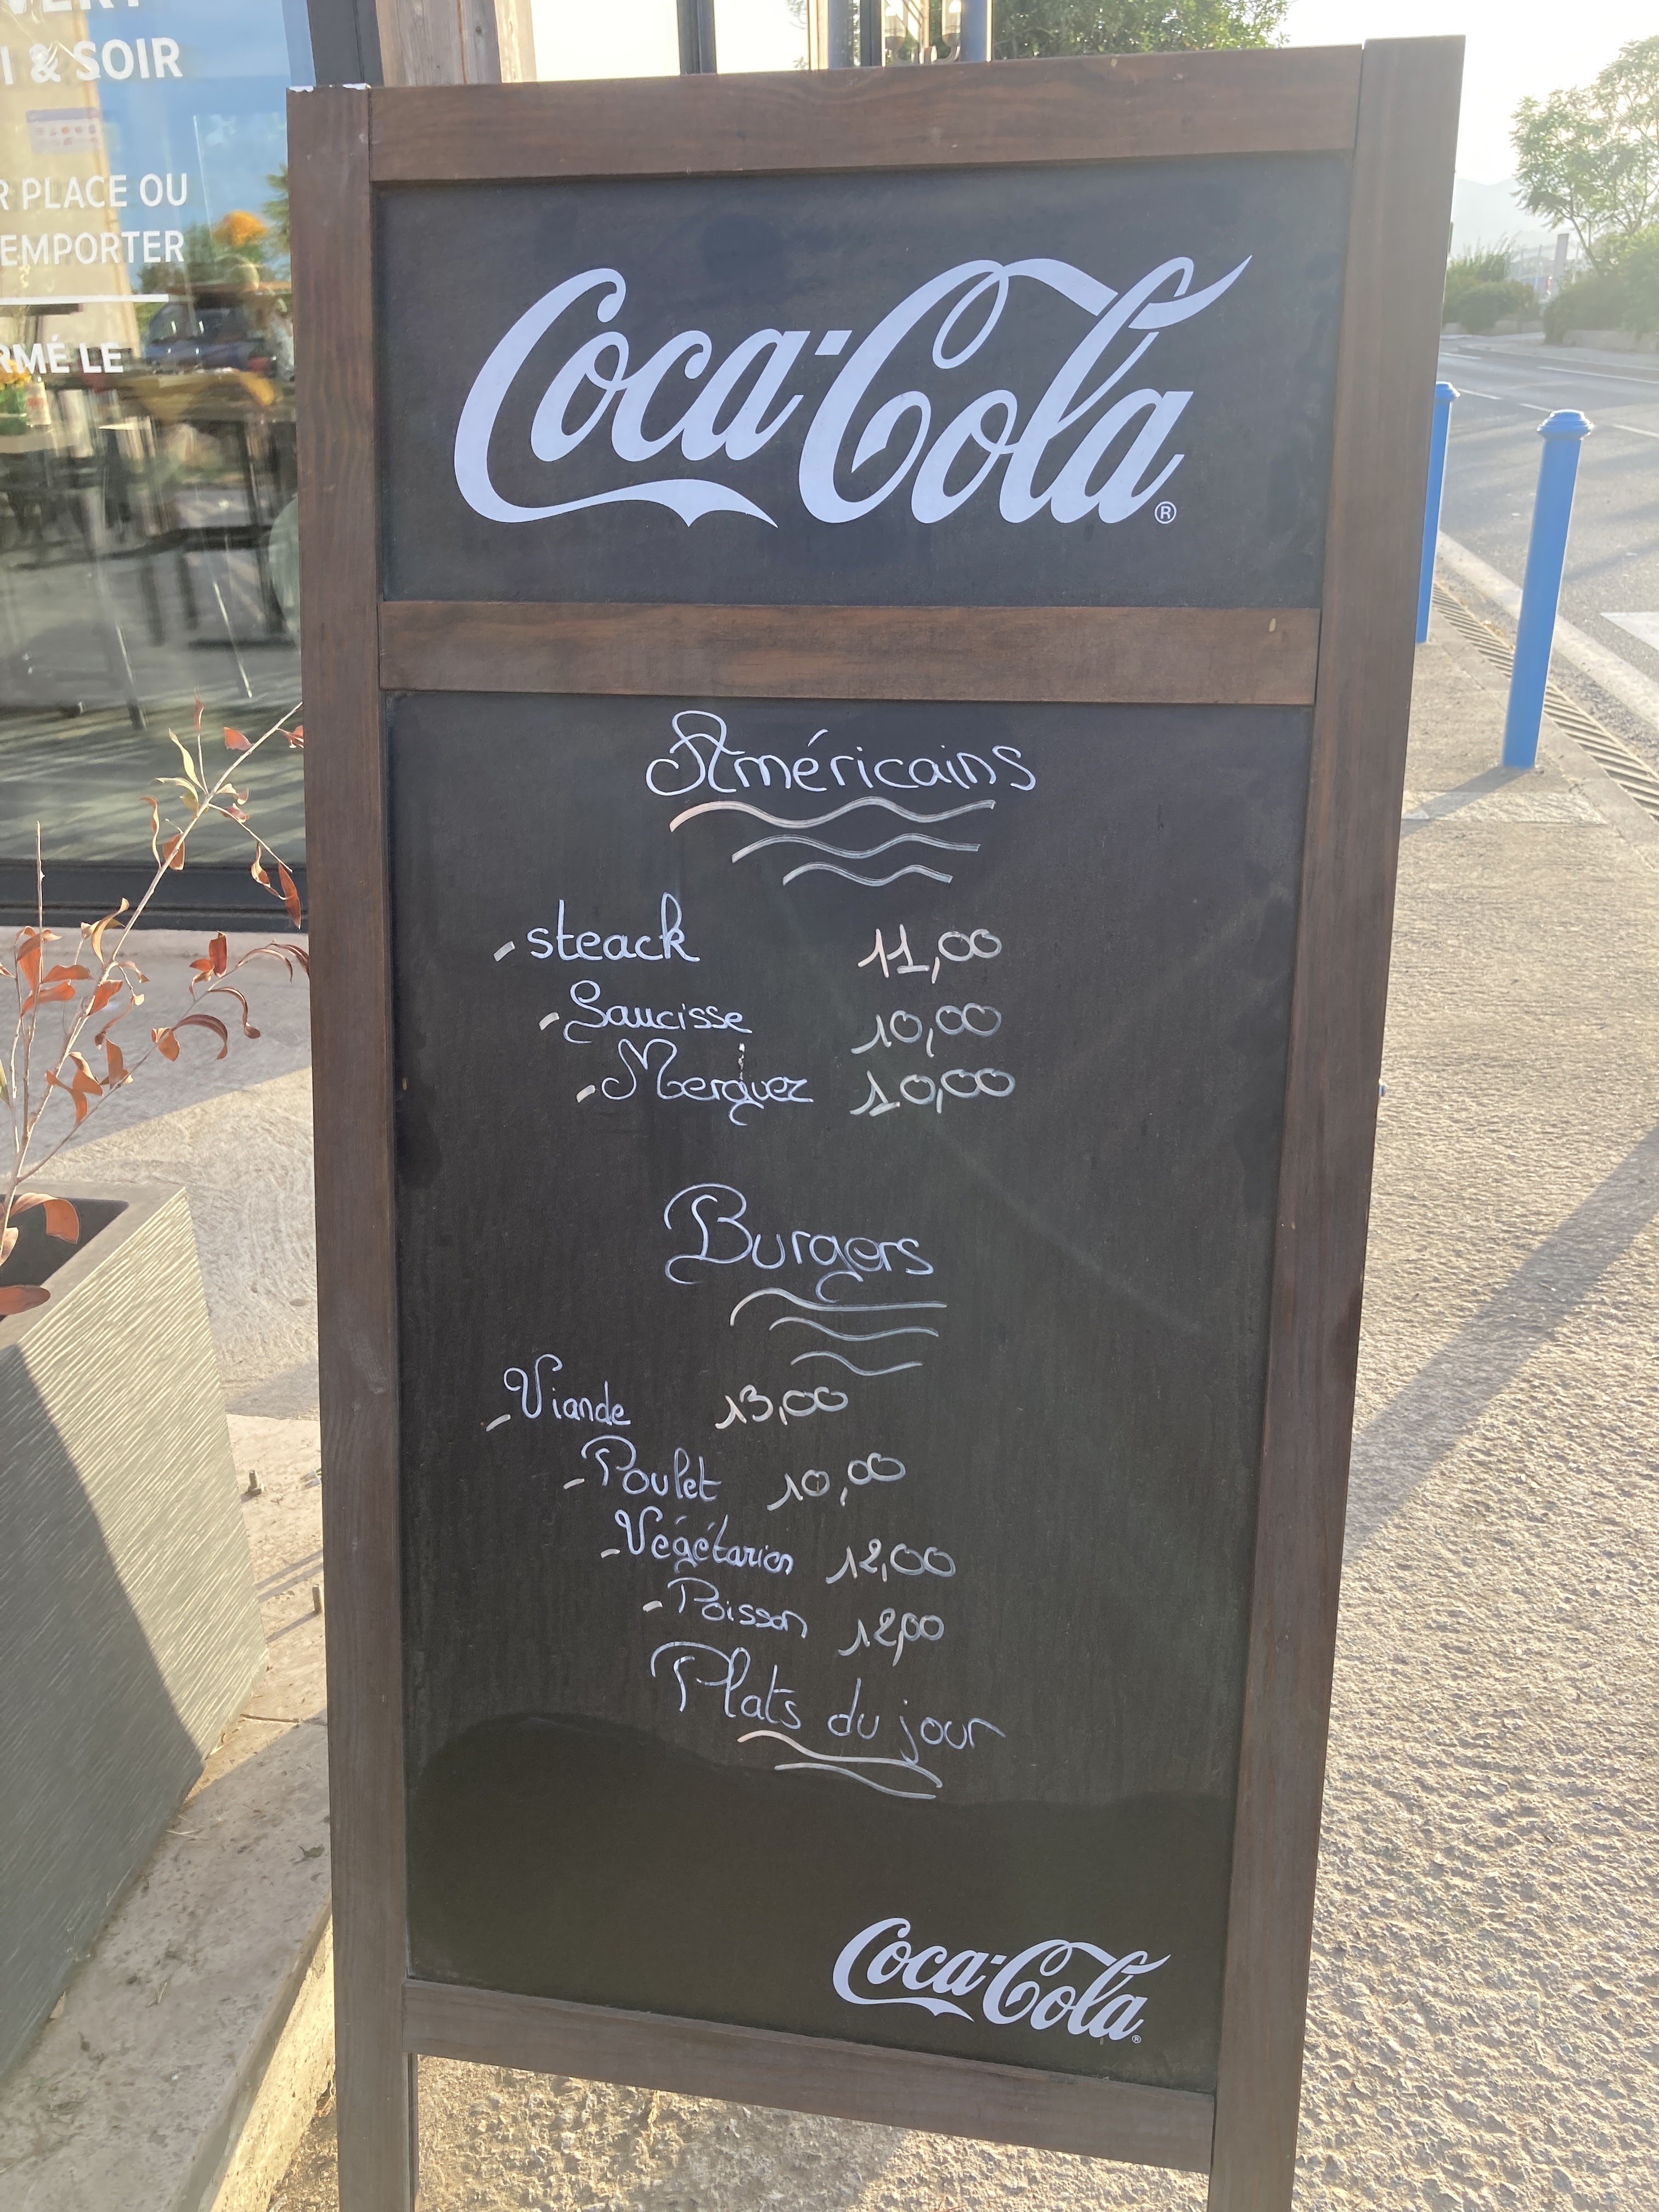 & SOIR
PLACE OU
EMPORTER
LE
Coca-Cola®
Américains
- steack 11,00
- Saucisse 10,00
- Merguez 10,00
Burgers
- Viande 13,00
- Poulet 10,00
- Végétarien 12,00
- Poisson 12,00
Plats du jour
Coca-Cola®